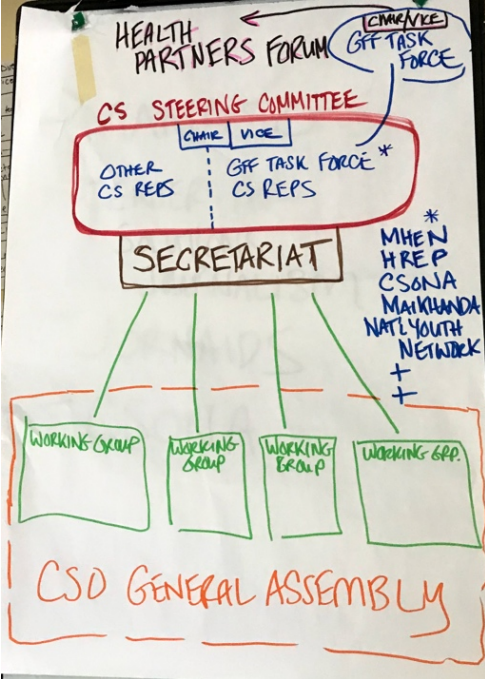 HEALTH
PARTNERS FORUM
CHAIR/VICE
GFF TASK
FORCE
CS STEERING COMMITTEE
CHAIR VICE
OTHER
CS REPS
GFF TASK FORCE *
CS REPS
SECRETARIAT
*
MHEN
HREP
CSONA
MAIKHANDA
NATL YOUTH
NETWORK
+
+
WORKING GROUP
WORKING
GROUP
WORKING
GROUP
WORKING GRP.
CSO GENERAL ASSEMBLY